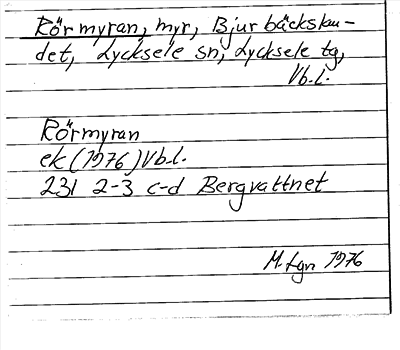 Rörmyran, myr, Bjurbäcksku-
det, Lycksele sn, Lycksele tg,
Vb.l.
Rörmyran
ek (1976) Vb.l.
231 2-3 c-d Bergvattnet
M. Lgn 1976